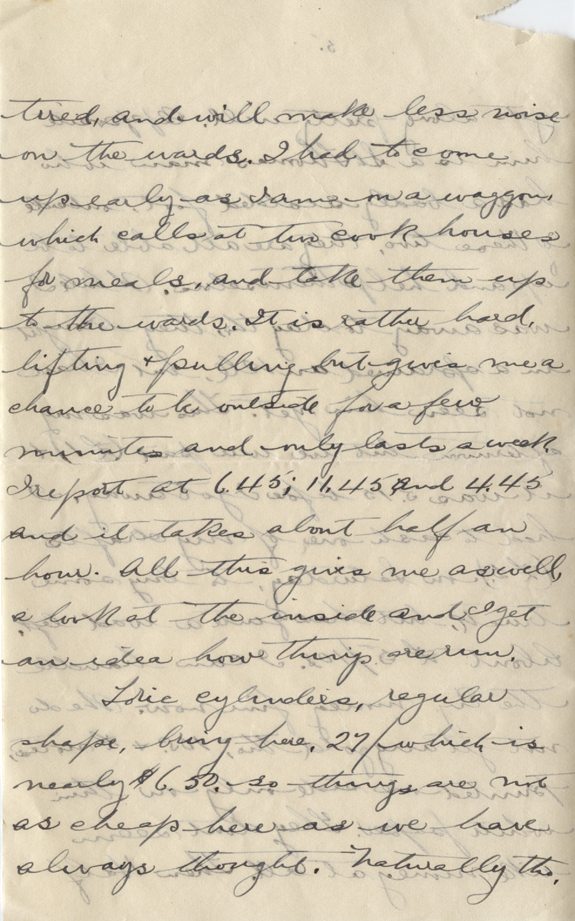 5.
tired, and will make less noise
on the wards. I had to come
up early as I am on a waggon,
which calls at two cook houses
for meals, and take them up
to the wards. It is rather hard,
lifting + pulling but gives me a
chance to be outside for a few
minutes and only lasts a week.
I report at 6.45; 11.45 and 4.45
and it takes about half an
hour. All this gives me as well,
a look at the inside and I get
an idea how things are run.
Toric cylinders, regular
shape, bring here, 27/ which is
nearly $6.50. so things are not
as cheap here as we have
always thought. Naturally the,